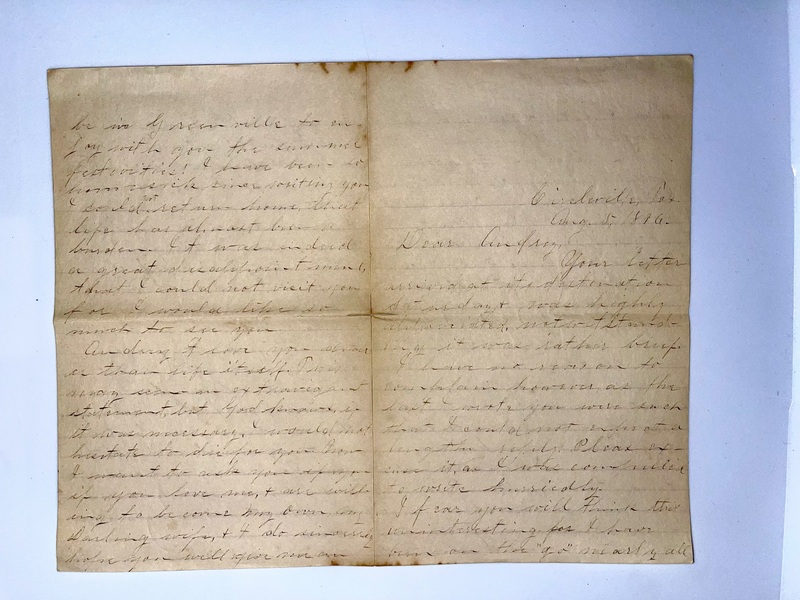 Aug. 5, 1886.
Dear
Your letter
arrived at its destination
Saturday & was highly
appreciated, notwithstand-
ing it was rather brief.
I have no reason to
complain however as the
last I wrote you were such
that I could not
lengthy reply. Pleas ex-
cuse it, as I was compelled
to write hurriedly.
I fear you will think this
uninteresting for I have
been on the "go" nearly all
be in Green ville to en-
joy with you the summer
festivities! I have been so
home sick since writing you
I could not return home, that
life has almost been a
burden. It was indeed
a great disappointment,
that I could not visit you
for I would like so
much to see you
I love you
than life itself. This
may seem an extravagant
statement, but God knows, if
it was necessary, I would not
hesitate to die for you. Now
I want to ask you
if you love me, & are will-
ing to become my own
Darling wife, & I do sincerely
hope you will give me an